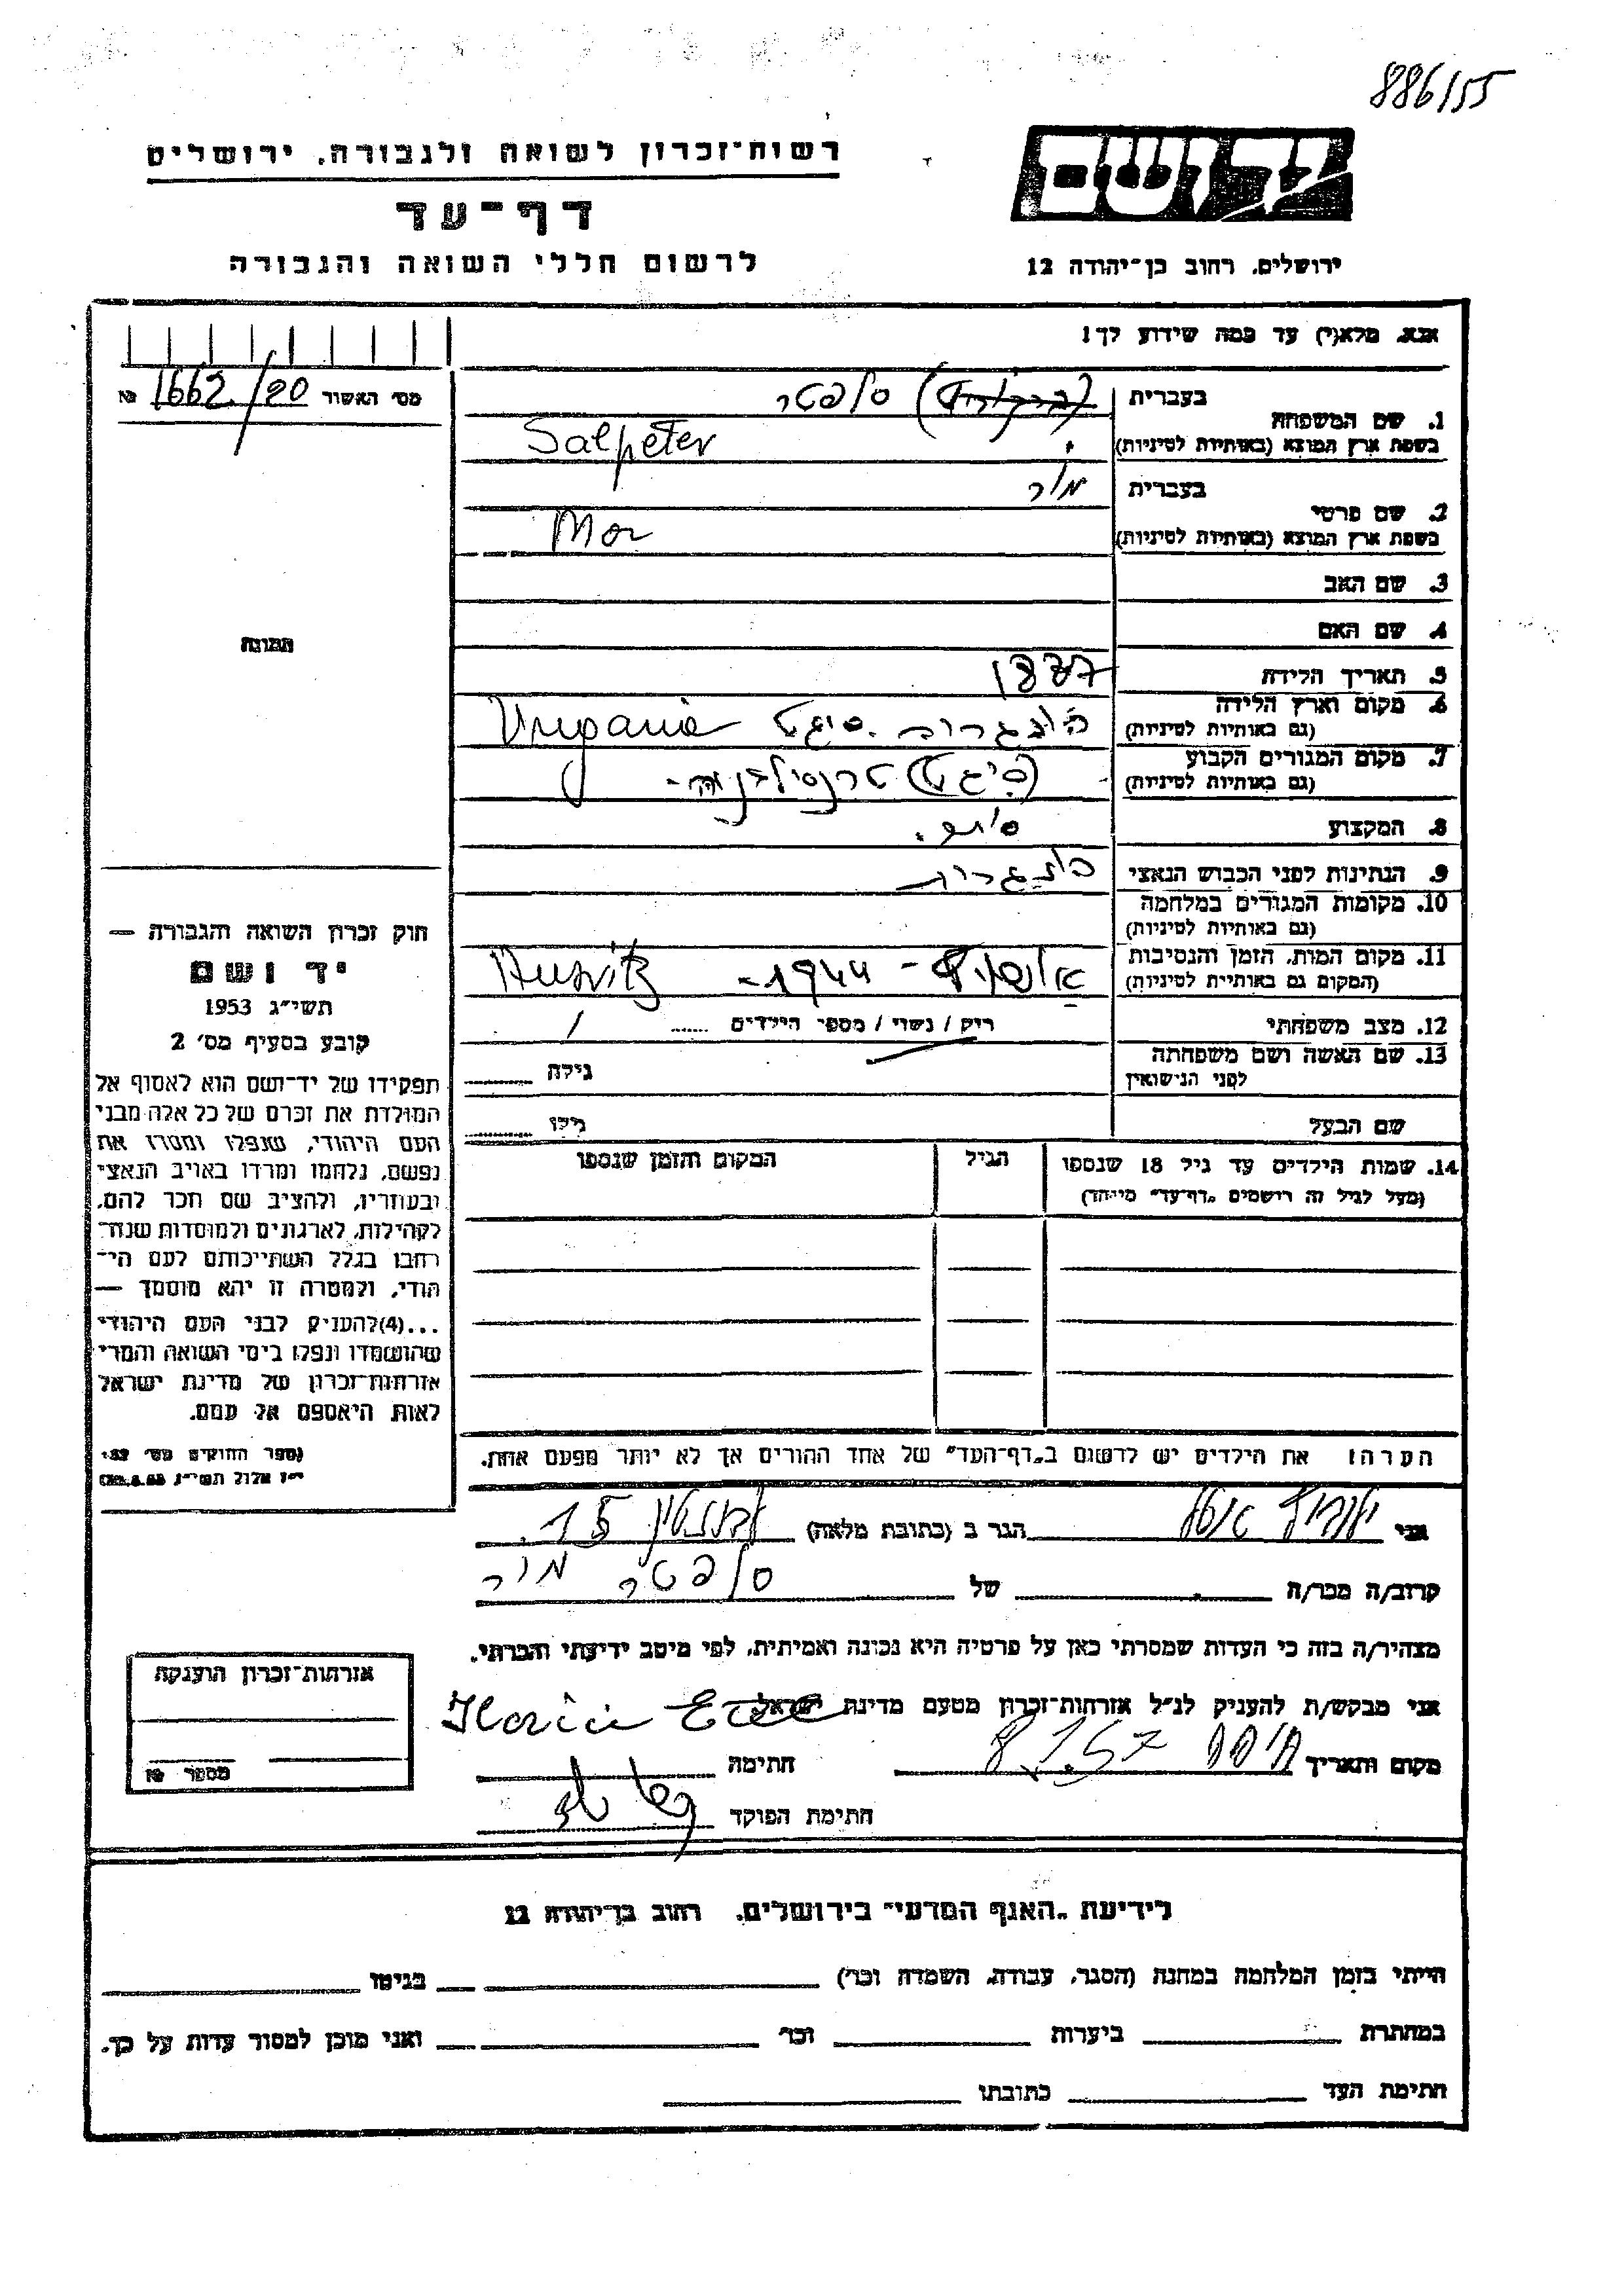 886/55
רשות־זכרון לשואה ולגבורה, ירושלים
יד ושם
דף־עד
לרשום חללי השואה והגבורה
ירושלים, רחוב בן־יהודה 12
אנא, מלא(י) עד כמה שידוע לך!
מס׳ האשור 1662/20 №
1. שם המשפחה
בעברית סלפטר
בשפת ארץ המוצא (באותיות לטיניות) Salpeter
2. שם פרטי
בעברית מור
בשפת ארץ המוצא (באותיות לטיניות) Mor
3. שם האב
4. שם האם
תמונה
5. תאריך הלידה 1887
6. מקום וארץ הלידה
(גם באותיות לטיניות) סיגט
7. מקום המגורים הקבוע
(גם באותיות לטיניות) (סיגט) טרנסילבניה
8. המקצוע סוחר.
9. הנתינות לפני הכבוש הנאצי
10. מקומות המגורים במלחמה
(גם באותיות לטיניות)
11. מקום המות, הזמן והנסיבות
(המקום גם באותיות לטיניות) 1944
12. מצב משפחתי רוק / נשוי / מספר הילדים
13. שם האשה ושם משפחתה
לפני הנישואין גילה
שם הבעל גילו
14. שמות הילדים עד גיל 18 שנספו הגיל המקום והזמן שנספו
(מעל לגיל זה רושמים „דף־עד״ מיוחד)
הערה: את הילדים יש לרשום ב„דף־העד״ של אחד ההורים אך לא יותר מפעם אחת.
חוק זכרון השואה והגבורה —
יד ושם
תשי״ג 1953
קובע בסעיף מס׳ 2
תפקידו של יד־ושם הוא לאסוף אל
המולדת את זכרם של כל אלה מבני
העם היהודי, שנפלו ומסרו את
נפשם, נלחמו ומרדו באויב הנאצי
ובעוזריו, ולהציב שם וזכר להם,
לקהילות, לארגונים ולמוסדות שנח־
רבו בגלל השתייכותם לעם הי־
הודי, ולמטרה זו יהא מוסמך —
...(4) להעניק לבני העם היהודי
שהושמדו ונפלו בימי השואה והמרי
אזרחות־זכרון של מדינת ישראל
לאות היאספם אל עמם.
(ספר החוקים מס׳ 132,
י״ז אלול תשי״ג
אני
הגר ב (כתובת מלאה) 15
קרוב/ה מכר/ה של סלפטר מור
מצהיר/ה בזה כי העדות שמסרתי כאן על פרטיה היא נכונה ואמיתית, לפי מיטב ידיעתי והכרתי.
אני מבקש/ת להעניק לנ״ל אזרחות־זכרון מטעם מדינת ישראל
מקום ותאריך חתימה
חתימת הפוקד
אזרחות־זכרון הוענקה
מספר №
לידיעת „האגף המדעי״ בירושלים, רחוב בן־יהודה 12
הייתי בזמן המלחמה במחנה (הסגר, עבודה, השמדה וכו׳) בגיטו
במחתרת ביערות וכו׳ ואני מוכן למסור עדות על כך.
חתימת העד כתובתו